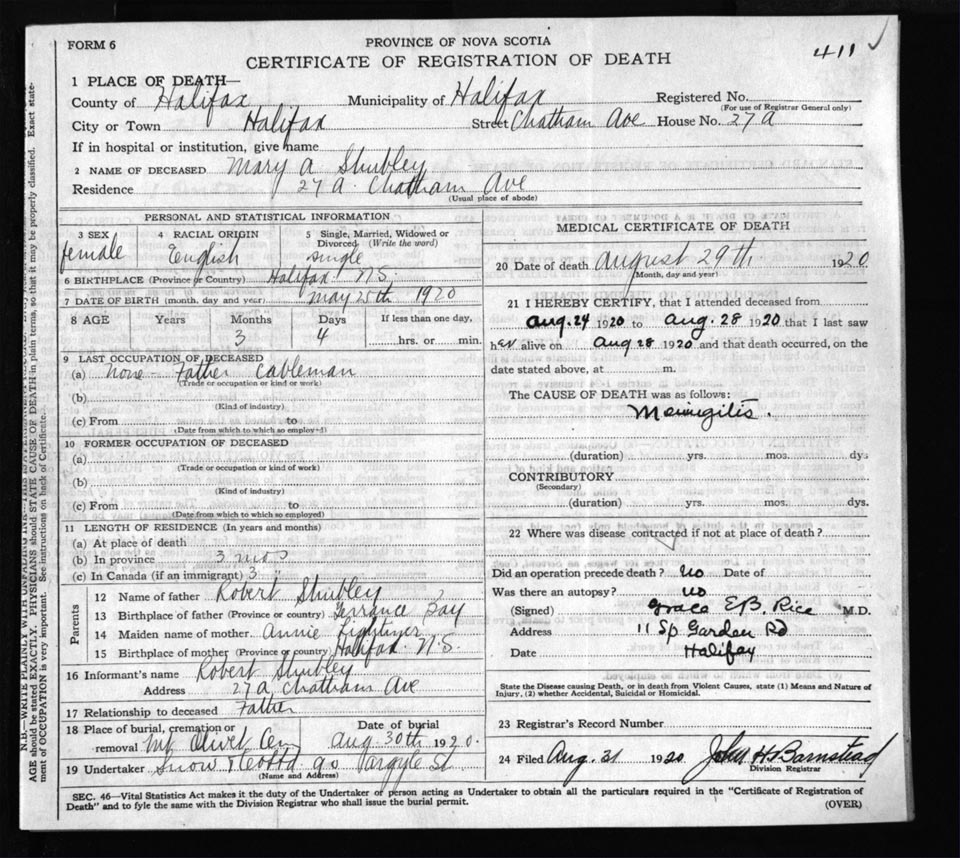 FORM 6
PROVINCE OF NOVA SCOTIA
CERTIFICATE OF REGISTRATION OF DEATH
411 ✓
1 PLACE OF DEATH—
County of Halifax Municipality of Halifax Registered No.
(For use of Registrar General only)
City or Town Halifax Street Chatham Ave House No. 27 A
If in hospital or institution, give name
2 NAME OF DECEASED Mary A Shubley
Residence 27 A. Chatham Ave
(Usual place of abode)
PERSONAL AND STATISTICAL INFORMATION
3 SEX 4 RACIAL ORIGIN 5 Single, Married, Widowed or Divorced (Write the word)
female English single
6 BIRTHPLACE (Province or Country) Halifax N.S.
7 DATE OF BIRTH (month, day and year) May 25th 1920
8 AGE Years Months Days If less than one day,
3 4 hrs. or min.
9 LAST OCCUPATION OF DECEASED
(a) None - Father Cableman
(Trade or occupation or kind or work)
(b)
(Kind of industry)
(c) From to
(Date from which to which so employed)
10 FORMER OCCUPATION OF DECEASED
(a)
(Trade or occupation or kind of work)
(b)
(Kind of industry)
(c) From to
(Date from which to which so employed)
11 LENGTH OF RESIDENCE (In years and months)
(a) At place of death
(b) In province 3 mos
(c) In Canada (if an immigrant) 3 "
Parents
12 Name of father Robert Shubley
13 Birthplace of father (Province or country) Terrance Bay
14 Maiden name of mother Annie
15 Birthplace of mother (Province or country) Halifax N.S.
16 Informant's name Robert Shubley
Address 27 A, Chatham Ave
17 Relationship to deceased Father
18 Place of burial, cremation or removal Mt Olivet Cem Date of burial Aug 30th 1920.
19 Undertaker Snow 90 Argyle St
(Name and Address)
MEDICAL CERTIFICATE OF DEATH
20 Date of death August 29th 1920
(Month, day and year)
21 I HEREBY CERTIFY, that I attended deceased from
Aug. 24 1920 to Aug. 28 1920 that I last saw
her alive on Aug 28 1920 and that death occurred, on the
date stated above, at m.
The CAUSE OF DEATH was as follows:
Meningitis.
(duration) yrs. mos. dys
CONTRIBUTORY
(Secondary)
(duration) yrs. mos. dys.
22 Where was disease contracted if not at place of death?
Did an operation precede death? no Date of
Was there an autopsy? no
(Signed) Grace E.B. Rice M.D.
Address 11 Sp Garden Rd
Date Halifax
State the Disease causing Death, or in death from Violent Causes, state (1) Means and Nature of
Injury, (2) whether Accidental, Suicidal or Homicidal.
23 Registrar's Record Number
24 Filed Aug. 31 1920 John H Barnstead
Division Registrar
SEC. 46—Vital Statistics Act makes it the duty of the Undertaker or person acting as Undertaker to obtain all the particulars required in the "Certificate of Registration of
Death" and to fyle the same with the Division Registrar who shall issue the burial permit.
(OVER)
N.B.—WRITE PLAINLY WITH UNFADING INK
AGE should be stated EXACTLY. PHYSICIANS should STATE CAUSE OF DEATH in plain terms, so that it may be properly classified. Exact statement of OCCUPATION is very important. See instructions on back of Certificate.